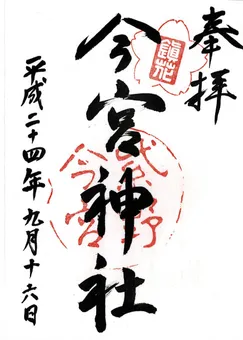 奉拝
鎭花
今宮神社
今宮
平成二十四年九月十六日